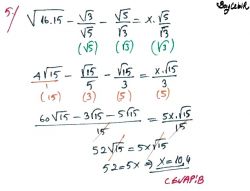 BayÇebir
5/ √16.15 - √3/√5 - √5/√3 = x.√5/√3
(√5) (√3) (√3)
4√15/1 - √15/5 - √15/3 = x.√15/3
(15) (3) (5) (5)
60√15 - 3√15 - 5√15/15 = 5x.√15/15
52√15 = 5x√15
52 = 5x ⇒ x = 10,4
CEVAP: B